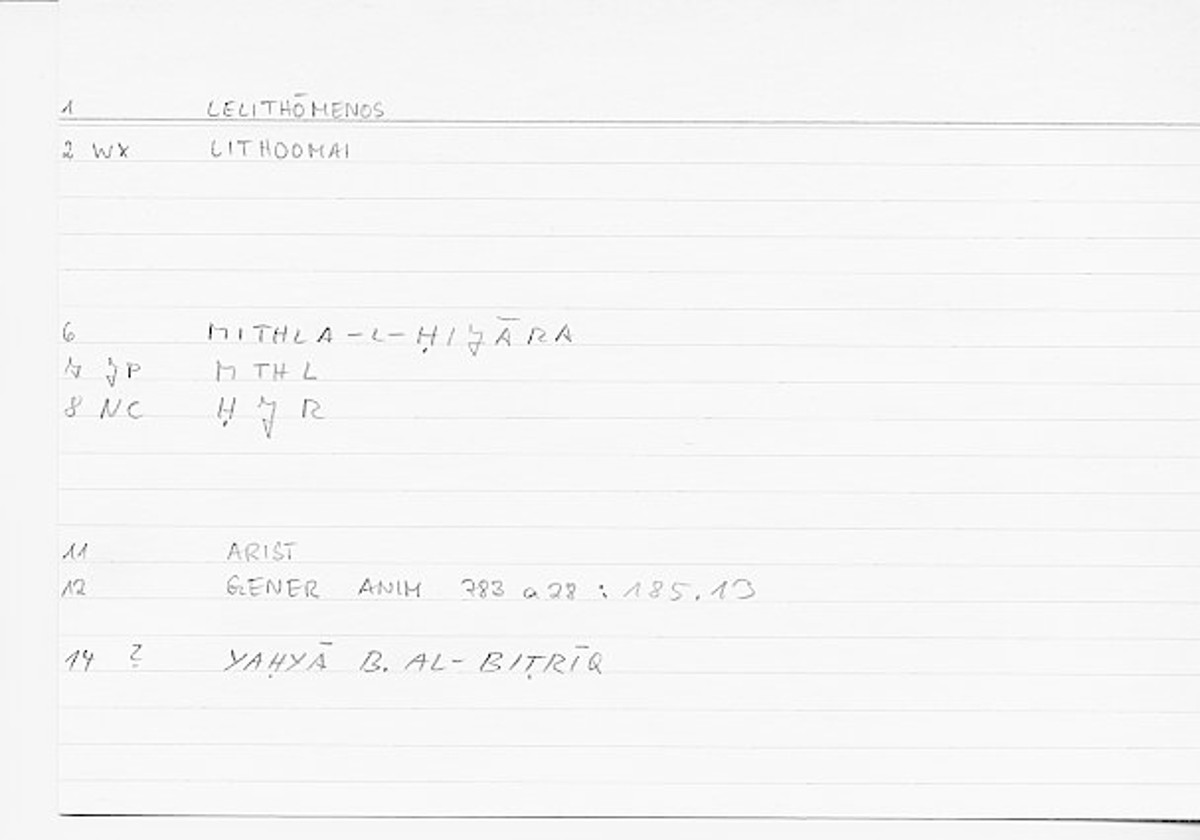 1 LELITHŌMENOS
2 WX LITHOOMAI
6 MITHLA-L-ḤIJĀRA
7 JP M TH L
8 NC Ḥ J R
11 ARIST
12 GENER ANIM 783 a 28 : 185.13
14 ? YAḤYĀ B. AL-BIṬRĪQ